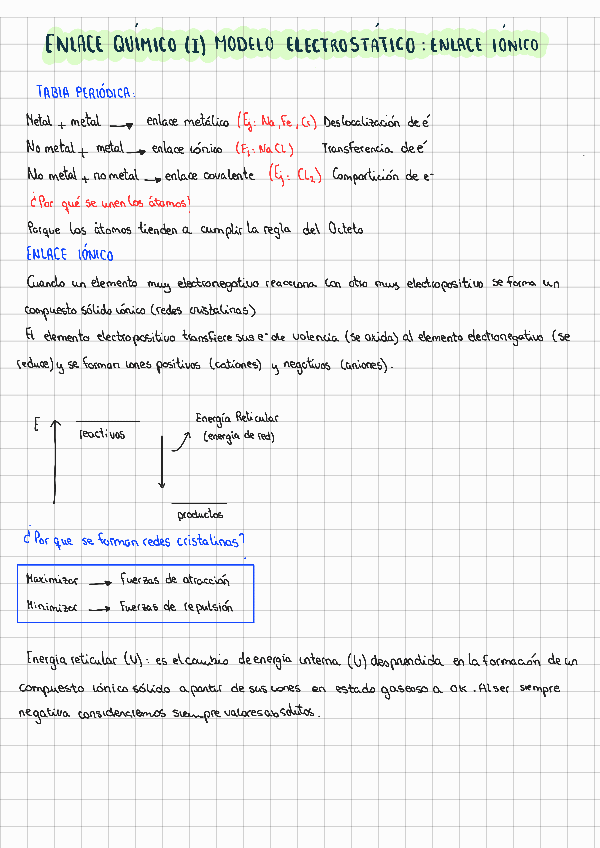 ENLACE QUÍMICO (I) MODELO ELECTROSTÁTICO: ENLACE IÓNICO
TABLA PERIÓDICA:
Metal + metal → enlace metálico (Ej: Na, Fe, Cr) Deslocalización de e⁻
No metal + metal → enlace iónico (Ej: NaCl) Transferencia de e⁻
No metal + no metal → enlace covalente (Ej: Cl₂) Compartición de e⁻
¿Por qué se unen los átomos?
Porque los átomos tienden a cumplir la regla del Octeto
ENLACE IÓNICO
Cuando un elemento muy electronegativo reacciona con otro muy electropositivo se forma un
compuesto sólido iónico (redes cristalinas)
El elemento electropositivo transfiere sus e⁻ de valencia (se oxida) al elemento electronegativo (se
reduce) y se forman iones positivos (cationes) y negativos (aniones).
E
reactivos
Energía Reticular
(energía de red)
productos
¿Por que se forman redes cristalinas?
Maximizar → Fuerzas de atracción
Minimizar → Fuerzas de repulsión
Energía reticular (U): es el cambio de energía interna (U) desprendida en la formación de un
compuesto iónico sólido a partir de sus iones en estado gaseoso a 0K. Al ser siempre
negativa consideraremos siempre valores absolutos.